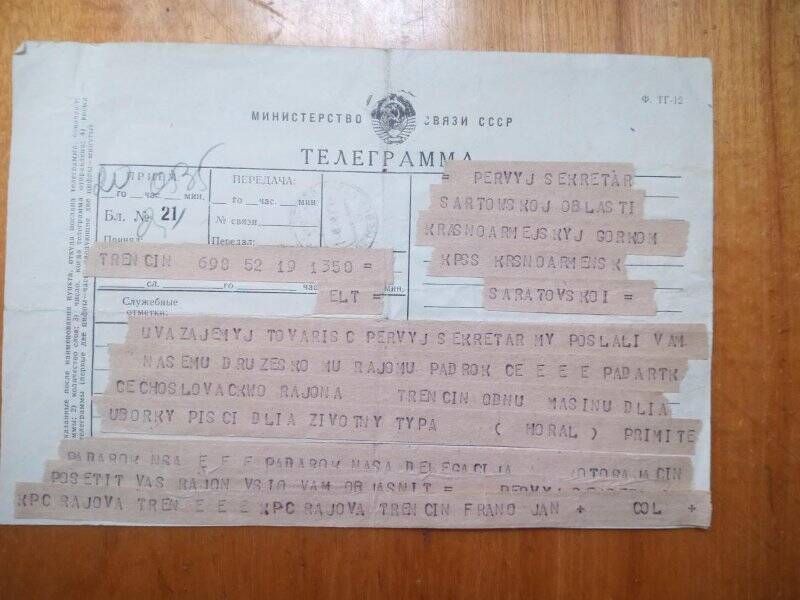 Ф. ТГ-12
МИНИСТЕРСТВО СВЯЗИ СССР
ТЕЛЕГРАММА
ПРИЕМ:
го час. мин.
Бл. № 21
Принял:
ПЕРЕДАЧА:
го час. мин.
№ связи
Передал:
= PERVYJ SEKRETÀR
SARTOVSKOJ OBLASTI
KRASNOARMEJSKYJ GORKOM
KPSS KRSNOARMENSK
SARATOVSKOI =
TRENCIN 698 52 19 1350 =
сл. го час.
ELT =
Служебные
отметки:
UVAZAJEMYJ TOVARISC PERVYJ SEKRETAR MY POSLALI VAM
NASEMU DRUZESKO MU RAJOMU PADROK CE E E E PADARTK
CECHOSLOVACKWO RAJONA TRENCIN OBNU MASINU DLIA
UBORKY PISCI DLIA ZIVOTNY TYPA ( MORAL ) PRIMITE
PADAROK NSA E E E PADAROK NASA DELEGACIJA KOTORAJA CIN
POSETIT VAS RAJON VSIO VAM OBJASNIT =
KPC RAJOVA TREN E E E KPC RAJOVA TRENCIN FRANO JAN + COL +